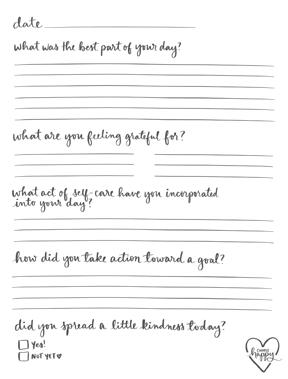 date
what was the best part of your day?
what are you feeling grateful for?
what act of self-care have you incorporated
into your day?
how did you take action toward a goal?
did you spread a little kindness today?
Yes!
NOT YET
CHOOSE
happy